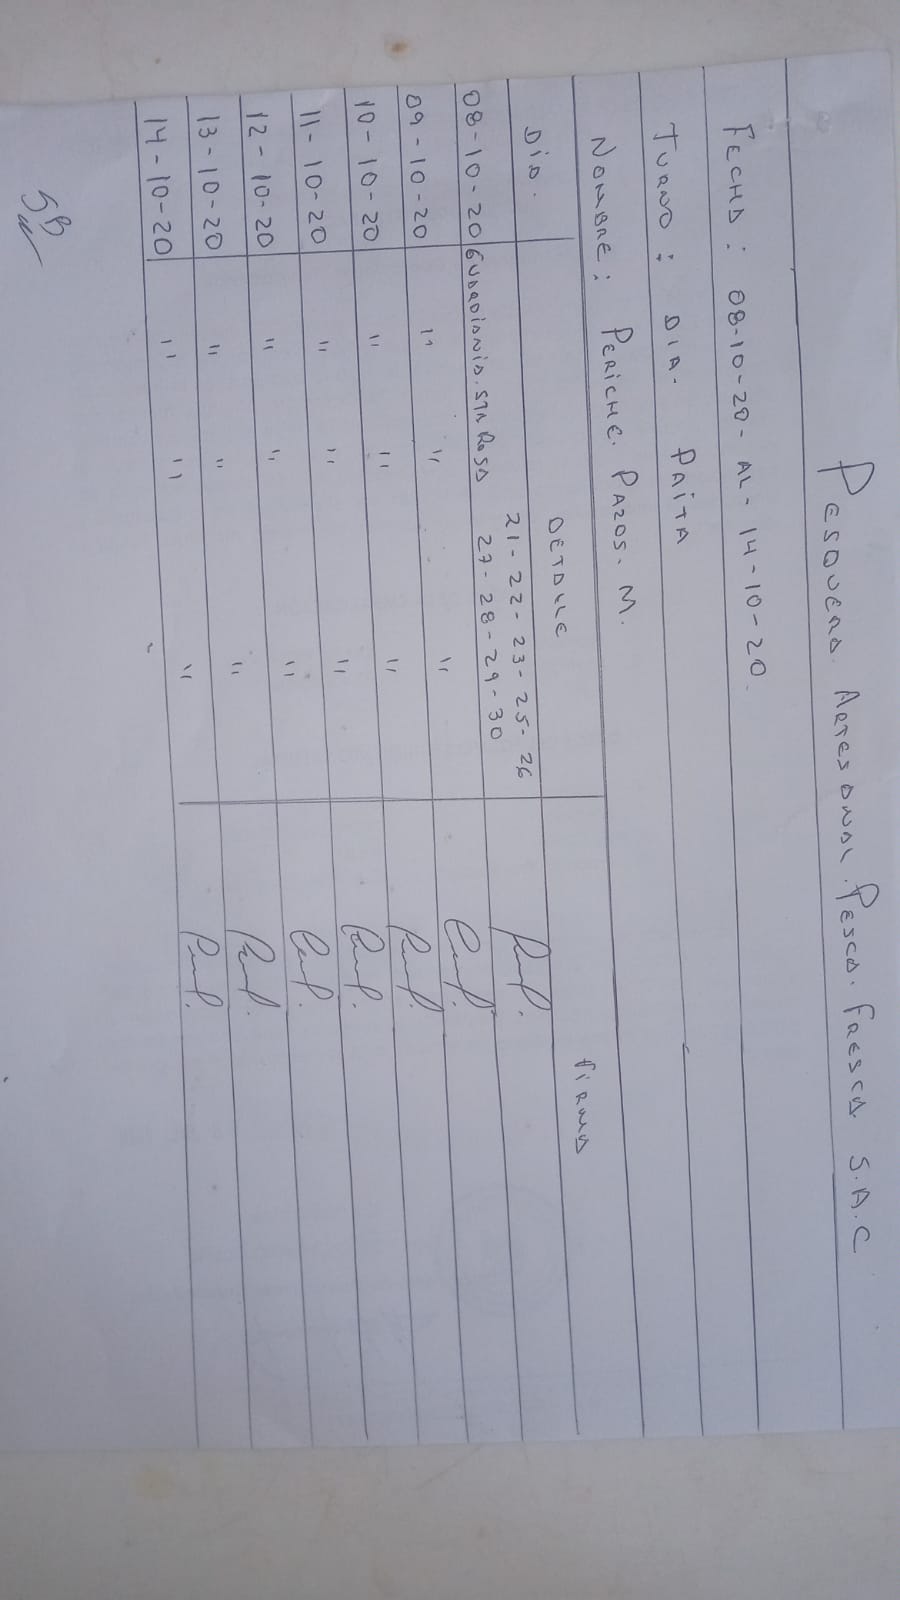 PESQUERA. ARTESANAL. PESCA. FRESCA. S.A.C
FECHA : 08-10-20- AL- 14-10-20.
TURNO : DIA. PAITA
NOMBRE : PERICHE. PAZOS. M.
DIA. DETALLE FIRMA
08-10-20 GUARDIANIA. STA ROSA 21-22-23-25-26
27-28-29-30
09-10-20 " " "
10-10-20 " " "
11-10-20 " " "
12-10-20 " " "
13-10-20 " " "
14-10-20 " " "